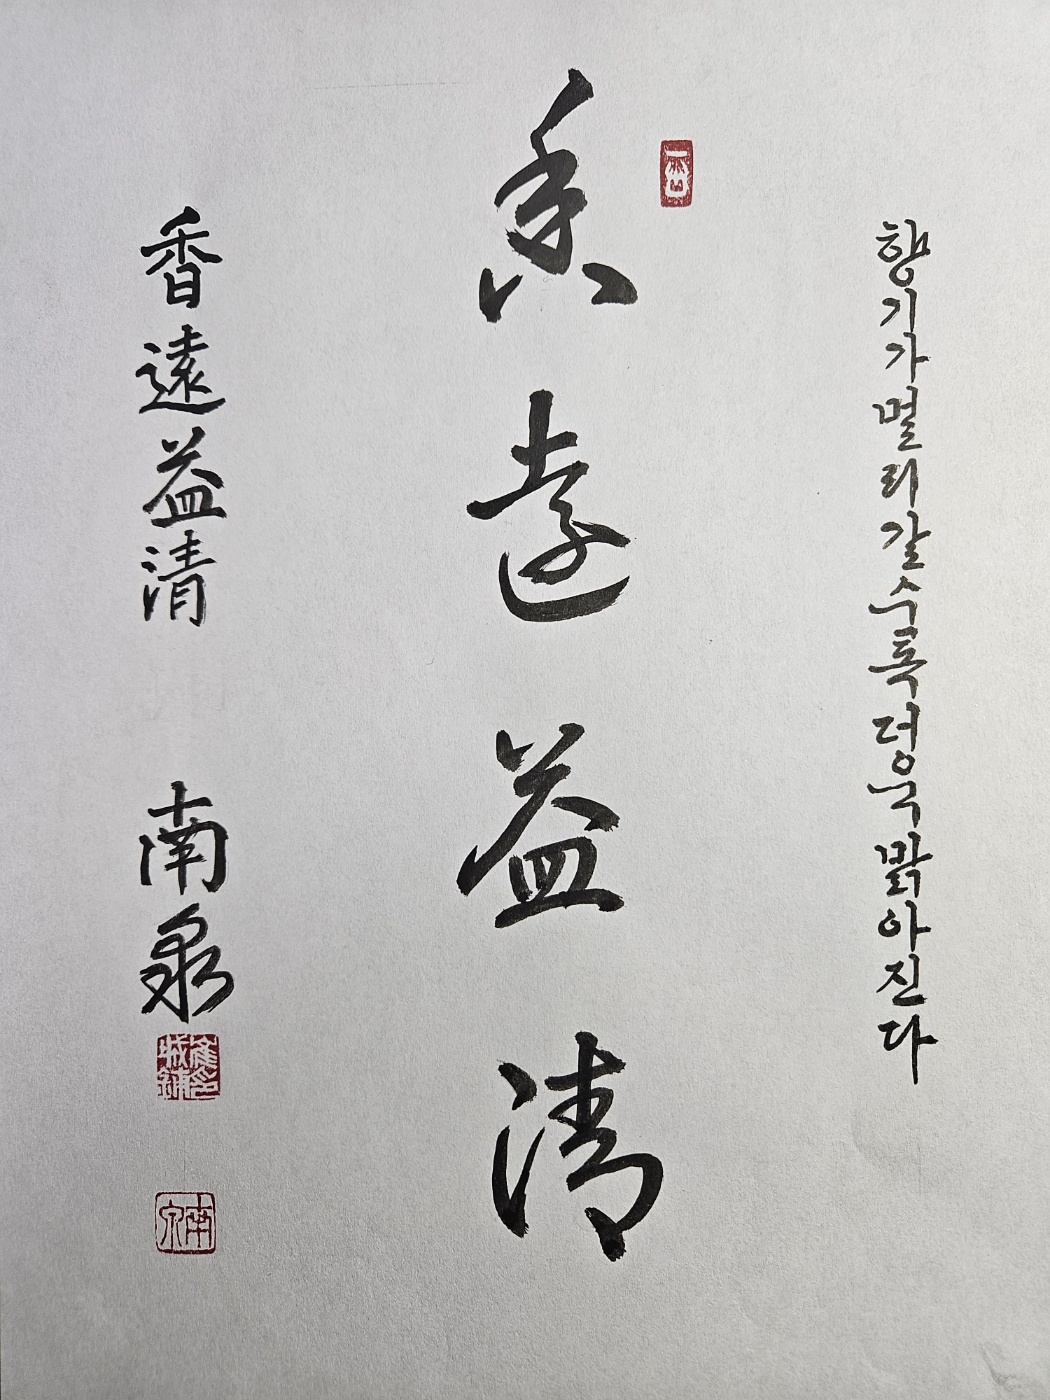 향기가멀리갈수록더욱밝아진다
香遠益清
香遠益清 南泉
南泉